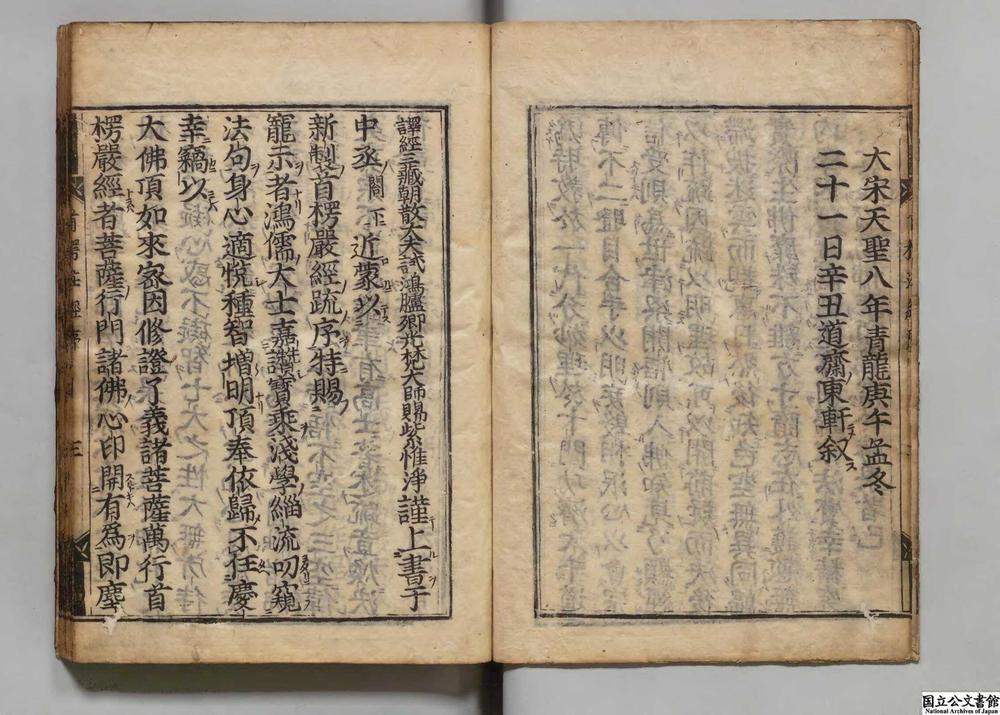 大宋天聖八年青龍庚午孟冬
二十一日辛丑道齋東軒叙
譯經三藏朝散大夫試鴻臚卿光梵大師賜紫惟淨謹上書于
中丞閤下近蒙以
新製首楞嚴經疏序特賜
寵示者鴻儒大士嘉讚寶乘淺學緇流叨窺
法句身心適悅種智增明頂奉依歸不任慶
幸竊以
大佛頂如來密因修證了義諸菩薩萬行首
楞嚴經者菩薩行門諸佛心印開有為即塵
国立公文書館
National Archives of Japan